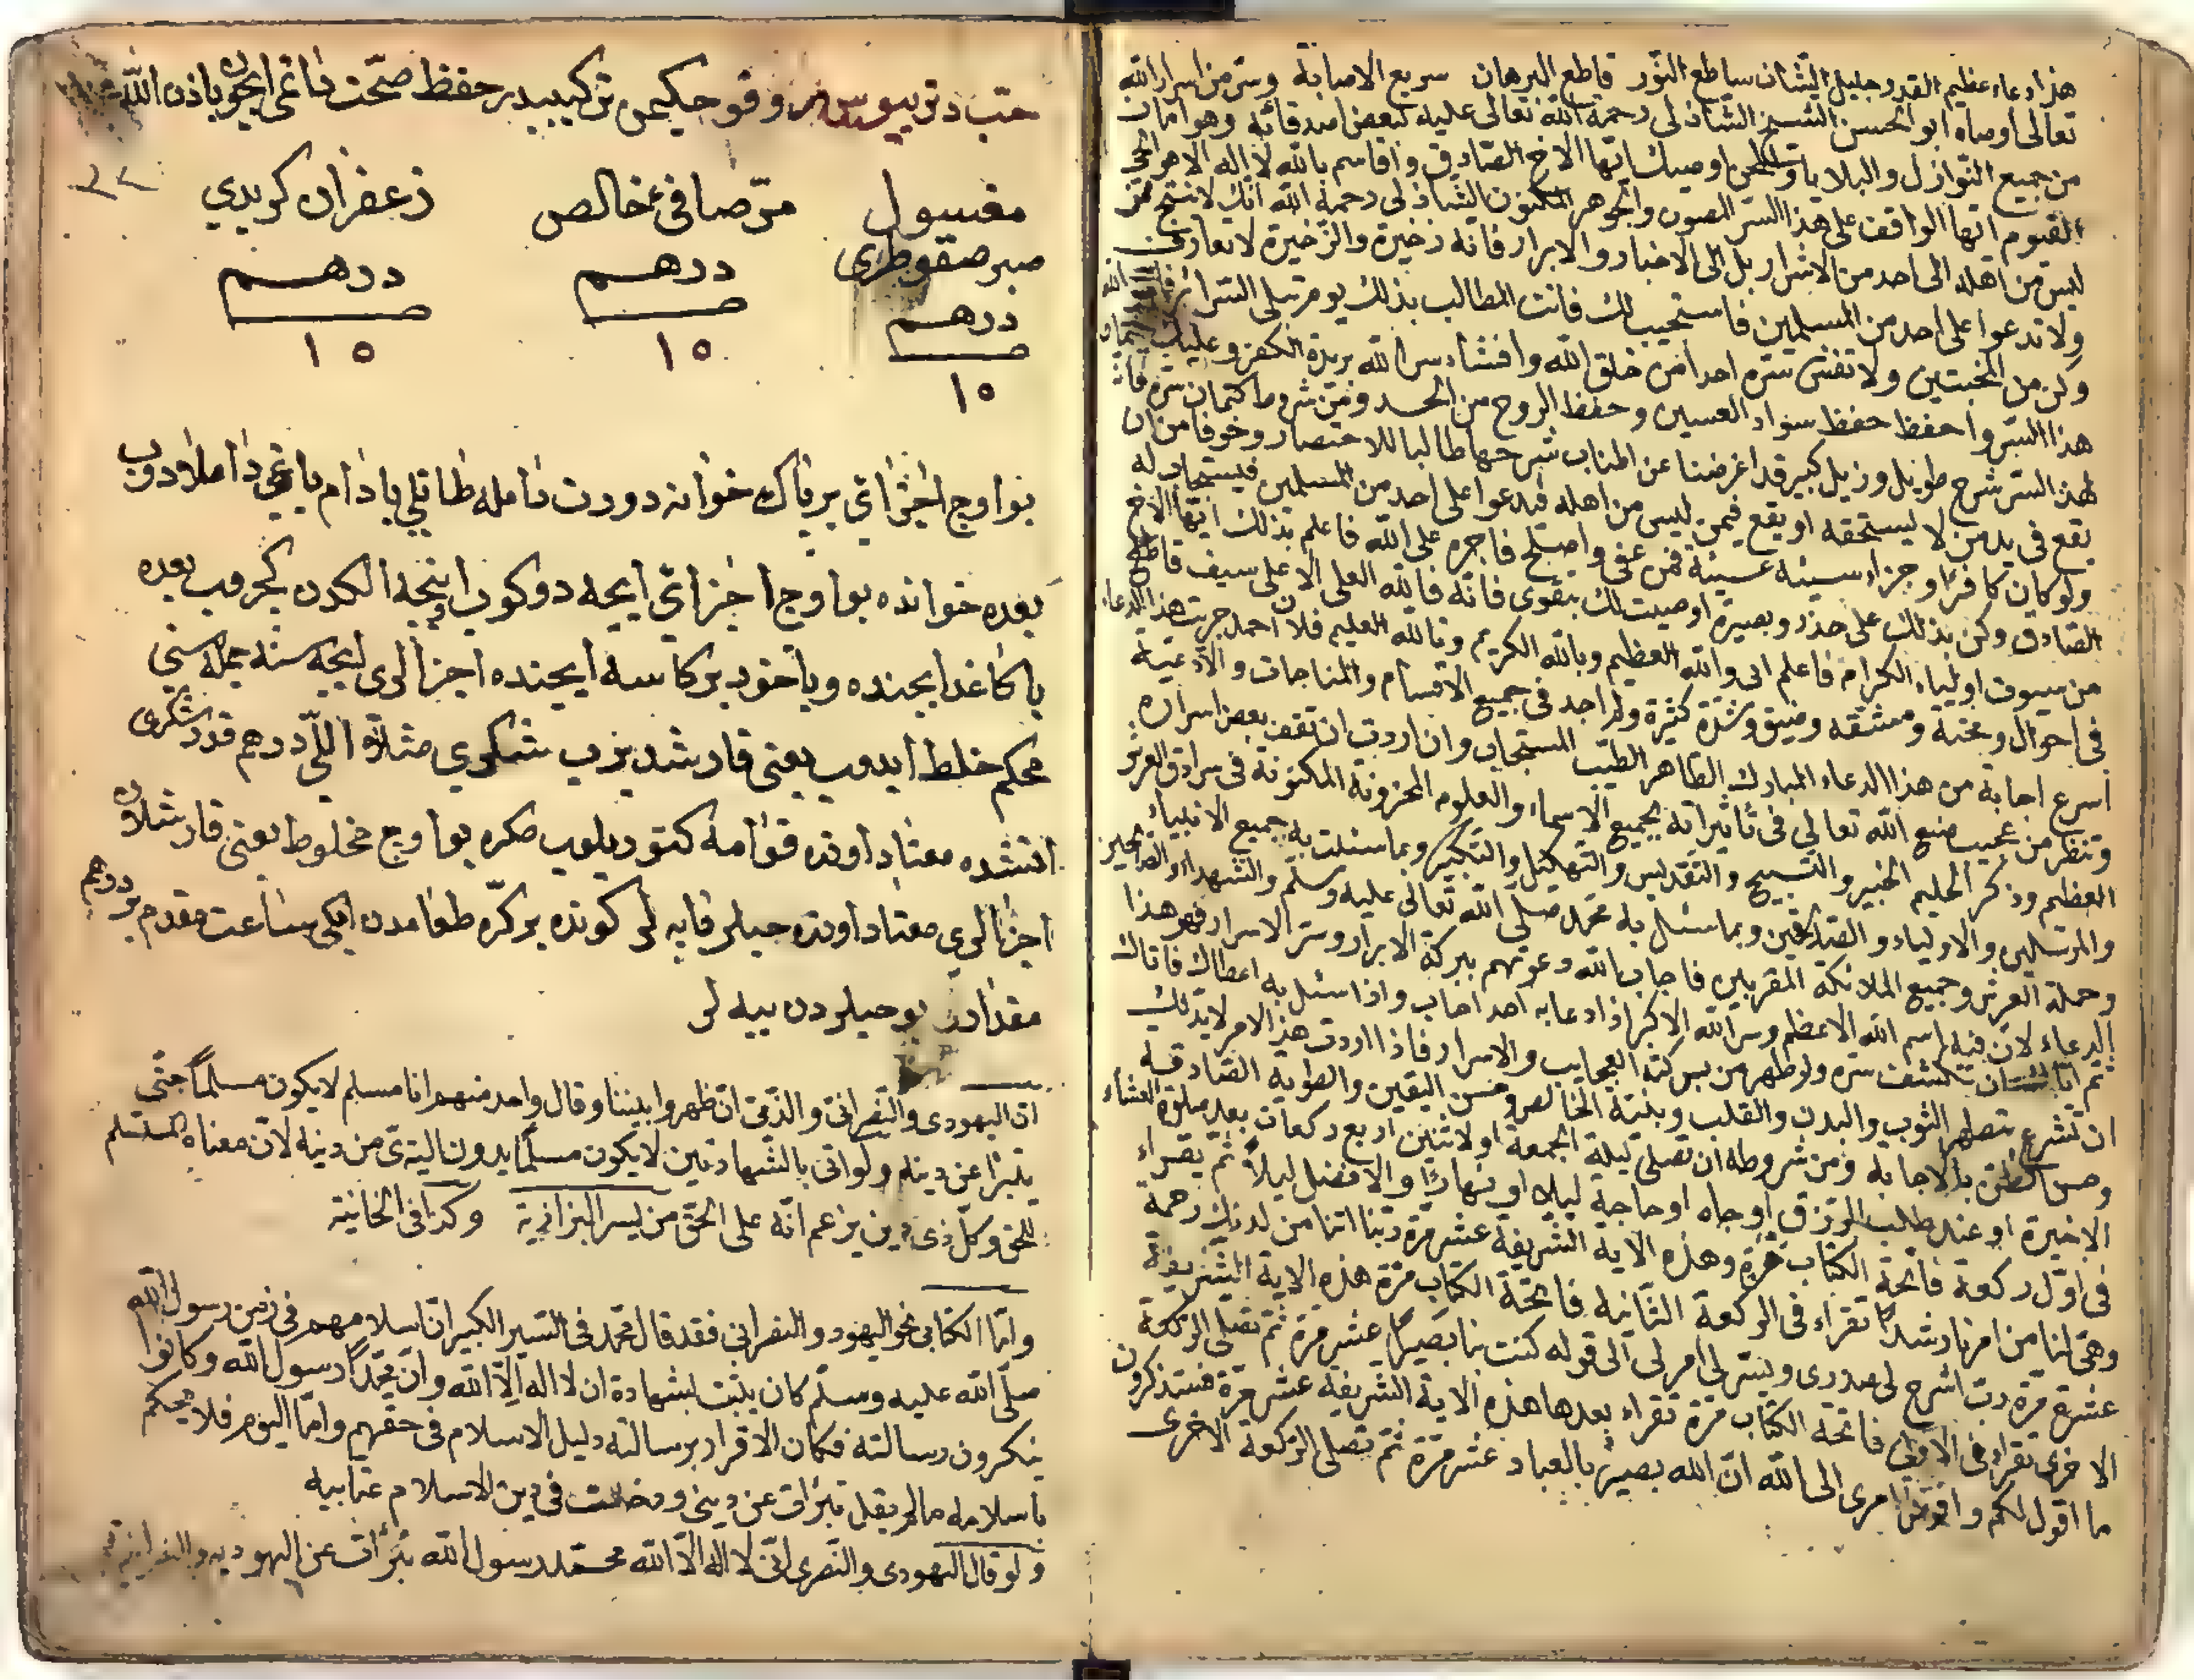 هذا دعاء عظيم القدر وجليل الشان ساطع النور قاطع البرهان سريع الاصابة وسر من اسرار الله
تعالى اوصاه ابو الحسن الشيخ الشاذلى رحمة الله تعالى عليه لبعض اصدقائه وهو امان
من جميع النوازل والبلايا والمحن اوصيك ايها الاخ الصادق واقاسم بالله لا اله الا هو الحى
القيوم ايها الواقف على هذا السر المصون والجوهر المكنون الشاذلى رحمة الله انك لا تبح
ليس من اهله الى احد من الاشرار بل الى الاخيار والابرار فانه ذخيرة والذخيرة لا تعار
ولا تدعوا على احد من المسلمين فاستجيب لك فانت المطالب بذلك يوم تبلى السرائر
وكن من المخبتين ولا تفش سره احدا من خلق الله وافشاء سر الله يريده الكفر وعليك
هذا السر واحفظ حفظ سواد العينين وحفظ الروح من الجسد ومن شروط كتمان سره فان
لهذا السر شرح طويل وزيل كبير قد اعرضنا عن اطناب شرحها طالبا للاختصار وخوفا من ان
يقع فى يد من لا يستحقه او يقع فيمن ليس من اهله فيدعوا على احد من المسلمين فيستجاب له
ولو كان كافرا وجزاء سيئة سيئة فمن عفى واصلح فاجره على الله فاعلم بذلك ايها الاخ
الصادق وكن بذلك على حذر وبصيرة اوصيت لك بتقوى فانه فالله العلى الاعلى سيف قاطع
من سيوف اولياء الكرام فاعلم انى والله العظيم وبالله الكريم وتالله العليم فلان احمد جربت هذا الدعاء
فى احوال ومحنة ومشقه وضيق وشدة كثيرة ولم اجد فى جميع الاقسام والمناجات والادعية
اسرع اجابة من هذا الدعاء المبارك الطاهر الطيب المستجاب وان اردت ان تقف بعض اسراره
وتنظر من عجيب صنع الله تعالى فى تاثيراته بجميع الاسماء والعلوم المخزونة المكنونة فى سرادق العرش
العظيم وذكر الحليم الخبير والتسبيح والتقديس والتهليل والتكبير وبما سئلت به جميع الانبياء
والمرسلين والاولياء والصديقين وبما سئل به محمد صلى الله تعالى عليه وسلم والشهداء والصالحين
وحملة العرش وجميع الملائكة المقربين فاجاب الله دعوتهم ببركة الابرار وسر الاسرار فهو هذا
الدعاء لان فيه اسم الله الاعظم وسر الله الاكبر اذا دعا به احد اجاب واذا سئل به اعطاك فاتاك
ثم ان ينكشف سره ولو ظهر من بركته العجايب والاسرار فاذا اردت هذا الامر لابد لك
ان تشرع بتطهير الثوب والبدن والقلب وبنية الخالص وحسن اليقين والطوية الصادقية
وحسن الظن بالاجابة ومن شروطه ان تصلى ليلة الجمعة او لاثنين اربع ركعات بعد صلوة العشاء
الاخيرة او عند طلب الرزق او جاه او حاجة ليلا او نهارا والافضل ليلا ثم يقراء
فى اول ركعة فاتحة الكتاب مرة وهذه الاية الشريفة عشر مرة ربنا اتنا من لدنك رحمة
وهيئ لنا من امرنا رشدا تقراء فى الركعة الثانية فاتحة الكتاب مرة هذه الاية الشريفة
عشرة مرة رب اشرح لى صدرى ويسر لى امر لى الى قوله كنت بنا بصيرا عشر مرة ثم تصلى الركعة
الاخرى تقراء فى الاولى فاتحة الكتاب مرة تقراء بعدها هذه الاية الشريفة عشر مرة فستذكرون
ما اقول لكم وافوض امرى الى الله ان الله بصير بالعباد عشر مرة ثم تصلى الركعة الاخرى
حب دتربيوس وقو حكيمى تركيبيدر حفظ صحت دماغى ايچون باذن الله
مغسول صبر صقوطرى درهم ١٥
مر صافى خالص درهم ١٥
زعفران كويدى درهم ١٥
بو اوچ اجزائى بر پاك خوانه دورت نامله طاتلى بادام ياغى داملادوب
بعده خوانده بو اوچ اجزائى ايجه دوكوب اينجه الكدن كچروب بعده
يا كاغد ايچنده ويا خود بر كاسه ايچنده اجزالرى ايجه سنه جمله سنى
محكم خلط ايدوب يعنى قارشدروب شكرى مثلا اللى درهم قدر شكرى
اتشده معتاد اوزره قوامه كتورديلوب صكره بو اوچ مخلوط يعنى قارشلان
اجزالرى معتاد اوزره حبلر ياپه لر كونده بر كره طعامدن ايكى ساعت مقدم بر درهم
مقدارى بو حبلردن ييه لر
ان اليهودى والنصرانى والذمى ان ظهروا بيننا وقال واحد منهم انا مسلم لا يكون مسلما حتى
يتبرا عن دينه ولو اتى بالشهادتين لا يكون مسلما بدون التبرى من دينه لان معناه المستسلم
للحق وكل ذى دين يزعم انه على الحق من يسر البزازية وكذا فى الخانية
واما الكتابى نحو اليهود والنصرانى فقد قال محمد فى السير الكبير ان اسلامهم فى زمن رسول الله
صلى الله عليه وسلم كان يثبت بشهادة ان لا اله الا الله وان محمدا رسول الله وكانوا
ينكرون رسالته فكان الاقرار برسالته دليل الاسلام فى حقهم واما اليوم فلا يحكم
باسلامه ما لم يقل تبرات عن دينى ودخلت فى دين الاسلام عتابيه
ولو قال اليهودى والنصرى انى لا اله الا الله محمد رسول الله تبرأت عن اليهودية والنصرانية